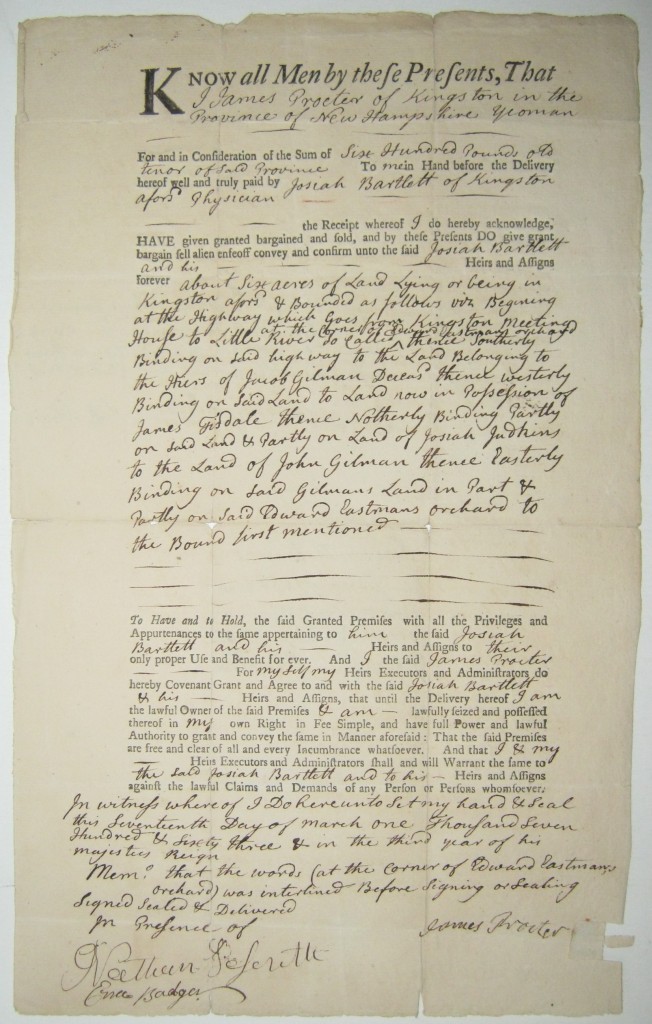 KNOW all Men by theſe Preſents, That
I James Procter of Kingston in the
Province of New Hampshire Yeoman
For and in Conſideration of the Sum of Six Hundred Pounds old
tenor of Said Province To me in Hand before the Delivery
hereof well and truly paid by Josiah Bartlett of Kingston
aforsd Physician
the Receipt whereof I do hereby acknowledge,
HAVE given granted bargained and sold, and by theſe Preſents DO give grant
bargain ſell alien enfeoff convey and confirm unto the ſaid Josiah Bartlett
and his Heirs and Aſſigns
forever about Six acres of Land Lying or being in
Kingston aforsd & Bounded as follows viz Begining
at the Highway which Goes from Kingston Meeting
House to Little River So Called ^ at the Corner of Edward Eastmans orchard thence Southerly
Binding on Said high way to the Land Belonging to
the Heirs of Jacob Gilman Decensd thence westerly
Binding on Said Land to Land now in Possession of
James Tisdale thence Notherly Binding Partly
on Said Land & Partly on Land of Josiah Judkins
to the Land of John Gilman thence Easterly
Binding on Said Gilmans Land in Part &
Partly on Said Edward Eastmans orchard to
the Bound first mentioned
To Have and to Hold, the ſaid Granted Premiſes with all the Privileges and
Appurtenances to the ſame appertaining to him the ſaid Josiah
Bartlett and his Heirs and Aſſigns to their
only proper Uſe and Benefit for ever. And I the ſaid James Procter
For my Self my Heirs Executors and Adminiſtrators do
hereby Covenant Grant and Agree to and with the ſaid Josiah Bartlett
& his Heirs and Aſſigns, that until the Delivery hereof I am
the lawful Owner of the ſaid Premiſes & am lawfully ſeized and poſſeſſed
thereof in my own Right in Fee Simple, and have full Power and lawful
Authority to grant and convey the ſame in Manner aforeſaid: That the ſaid Premiſes
are free and clear of all and every Incumbrance whatſoever. And that I & my
Heirs Executors and Adminiſtrators ſhall and will Warrant the ſame to
the Said Josiah Bartlett and to his Heirs and Aſſigns
againſt the lawful Claims and Demands of any Perſon or Perſons whomſoever.
In witness whereof I Do hereunto Set my hand & Seal
this Seventeenth Day of march one Thousand Seven
Hundred & Sixty Three & in the third year of his
majesties Reign
Memo. that the words (at the corner of Edward Eastmans
orchard) was interlined Before Signing or Sealing
Signed Sealed & Delivered
In Presence of
James Procter
Badger